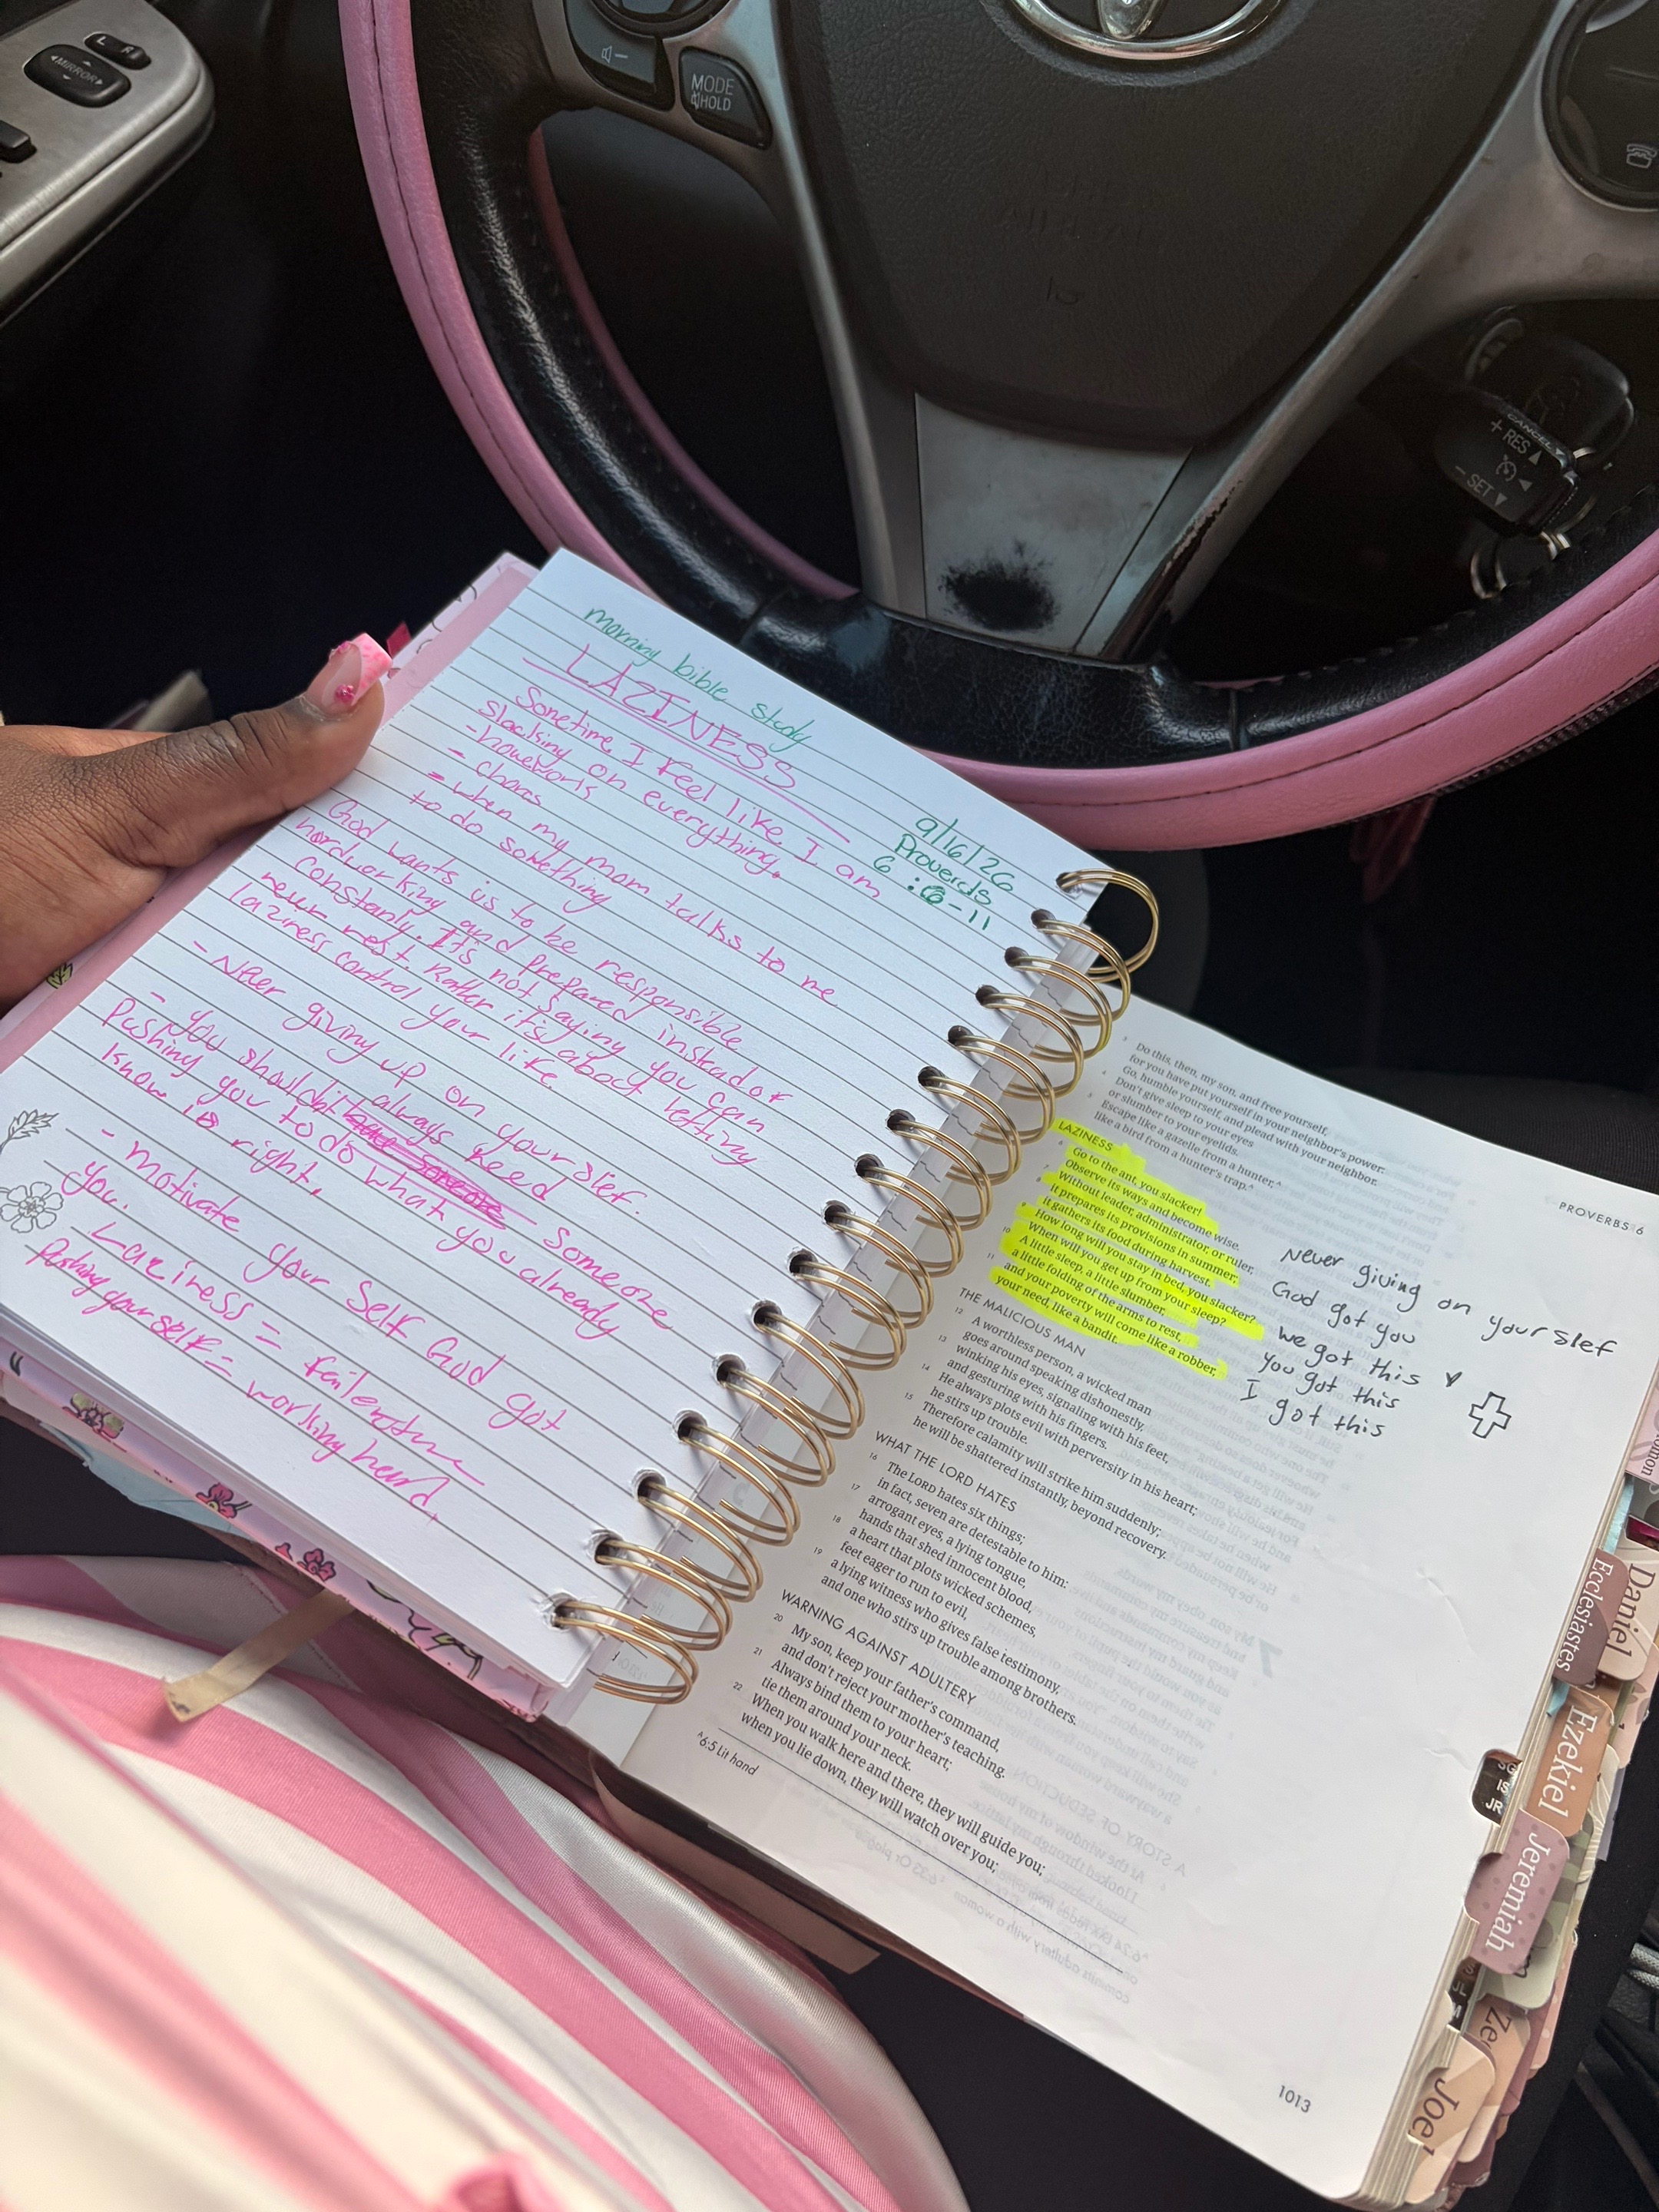 L R
MIRROR
MODE
HOLD
CANCEL
+ RES
- SET
morning bible study
LAZINESS
9/16/26
Proverbs
6:6-11
Sometime I feel like I am
slacking on everything.
- homework
- chores
- when my mom talks to me
to do something
God wants us to be responsible
hardworking and prepared instead of
constantly. It's not saying you can
never rest. Rather it's about letting
laziness control your life.
- Never giving up on your slef.
- You should always need someone
Pushing you to do what you already
know is right.
- motivate your self God got
you.
Laziness =
Pushing yourself = working heard
Do this, then, my son, and free yourself,
for you have put yourself in your neighbor's power:
Go, humble yourself, and plead with your neighbor.
4 Don't give sleep to your eyes
or slumber to your eyelids.
5 Escape like a gazelle from a hunter,ᴬ
like a bird from a hunter's trap.ᴬ
LAZINESS
6 Go to the ant, you slacker!
Observe its ways and become wise.
7 Without leader, administrator, or ruler,
8 it prepares its provisions in summer;
it gathers its food during harvest.
9 How long will you stay in bed, you slacker?
When will you get up from your sleep?
10 A little sleep, a little slumber,
a little folding of the arms to rest,
11 and your poverty will come like a robber,
your need, like a bandit.
THE MALICIOUS MAN
12 A worthless person, a wicked man
goes around speaking dishonestly,
13 winking his eyes, signaling with his feet,
and gesturing with his fingers.
14 He always plots evil with perversity in his heart;
he stirs up trouble.
15 Therefore calamity will strike him suddenly;
he will be shattered instantly, beyond recovery.
WHAT THE LORD HATES
16 The LORD hates six things;
in fact, seven are detestable to him:
17 arrogant eyes, a lying tongue,
hands that shed innocent blood,
18 a heart that plots wicked schemes,
feet eager to run to evil,
19 a lying witness who gives false testimony,
and one who stirs up trouble among brothers.
WARNING AGAINST ADULTERY
20 My son, keep your father's command,
and don't reject your mother's teaching.
21 Always bind them to your heart;
tie them around your neck.
22 When you walk here and there, they will guide you;
when you lie down, they will watch over you;
ᴬ6:5 Lit hand
PROVERBS 6
Never giving on your slef
God got you
we got this
You got this
I got this
1013
Ecclesiastes
Daniel
Ezekiel
Jeremiah
Joel